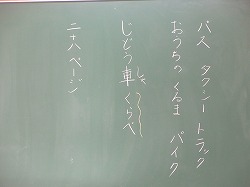 バス タクシー トラック
おうちの くるま バイク
じどう車くらべ
しゃ
二十八ページ